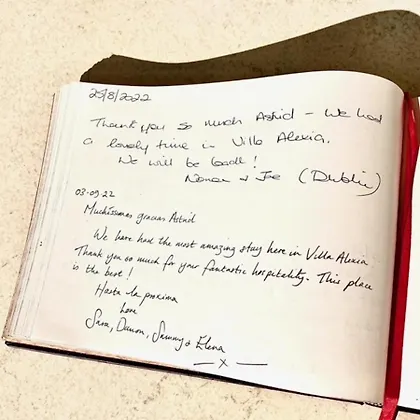 25/8/2022
Thank you so much Astrid - We had
a lovely time in Villa Alexia.
We will be back!
& Joe (Dublin)
03-09-22
Muchissimas gracias Astrid
We have had the most amazing stay here in Villa Alexia
Thank you so much for your fantastic hospitality. This place
is the best!
Hasta la proxima
love
Sara, Damon, Sammy & Elena
— x —